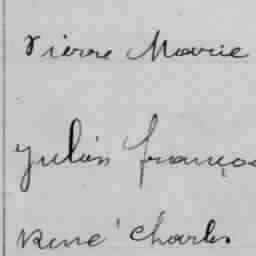 Pierre Marie
Julien françois
René Charles